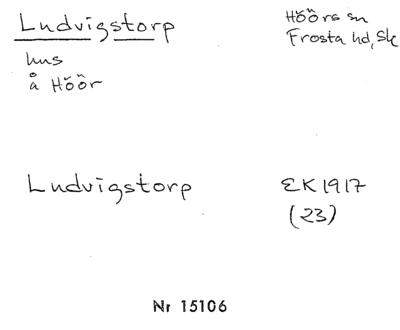 Ludvigstorp
Höörs sn
Frosta hd, Sk
hus
å Höör
Ludvigstorp
EK 1917
(23)
Nr 15106